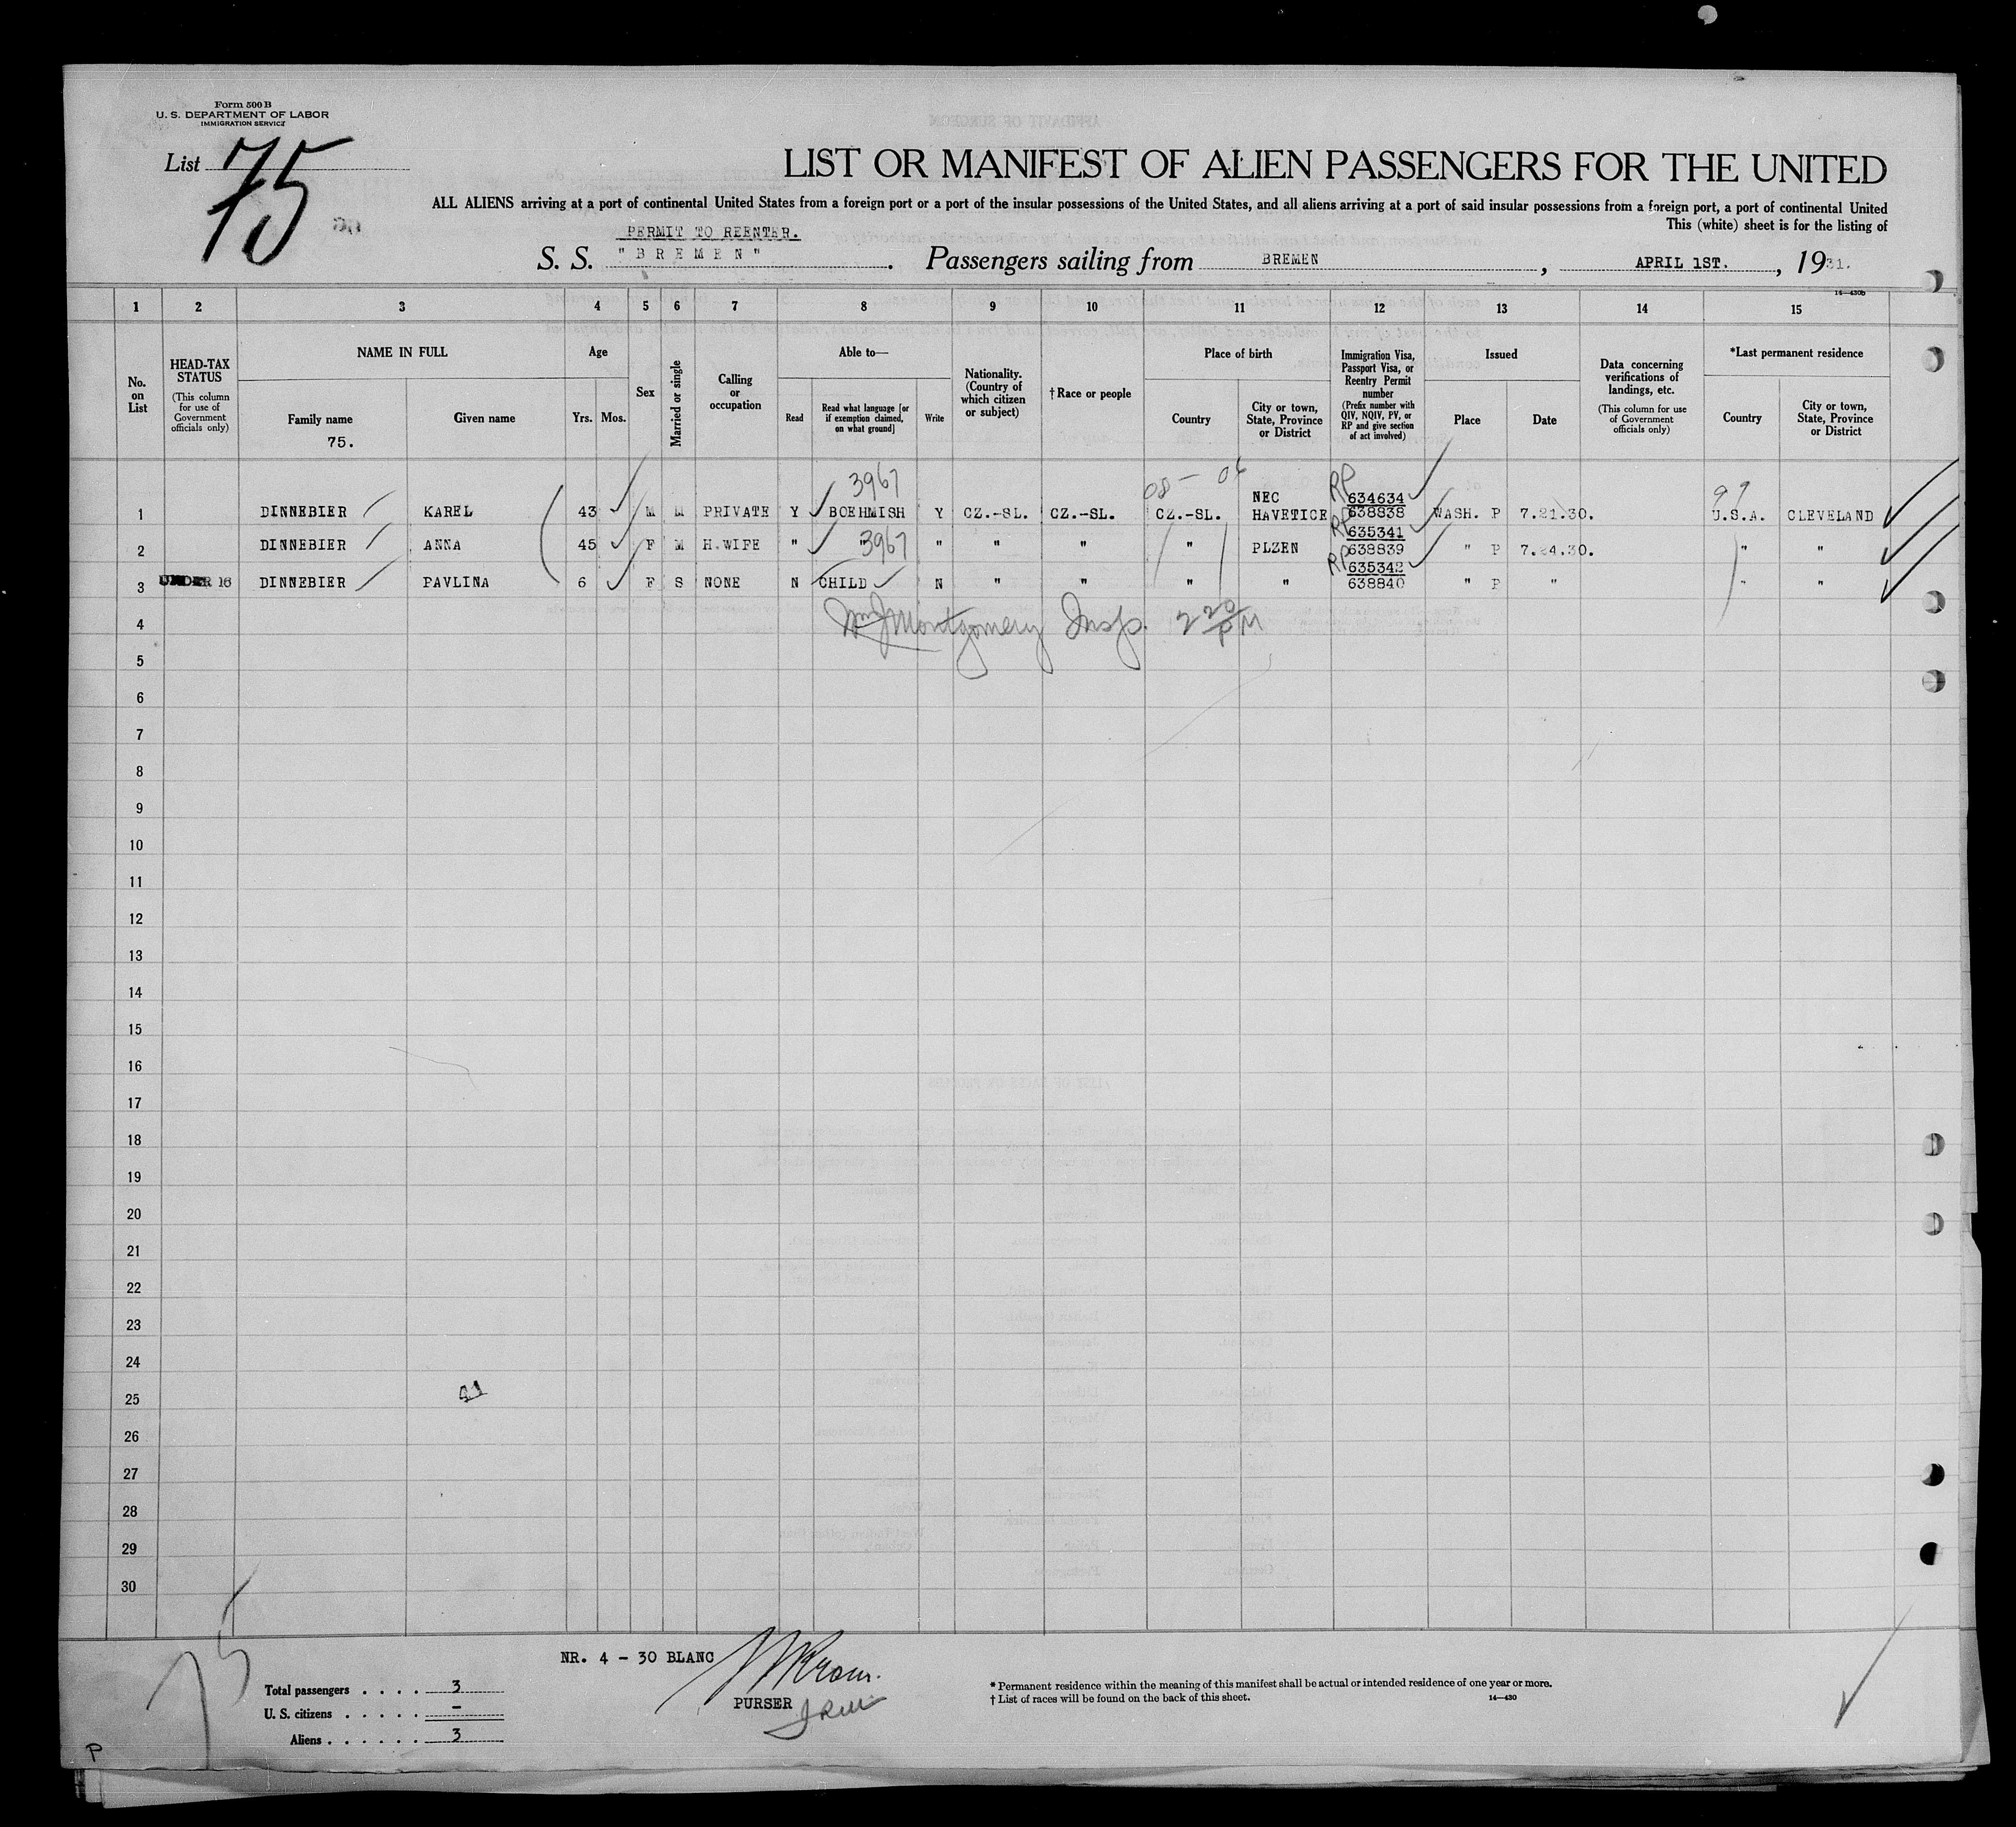 Form 500 B
U. S. DEPARTMENT OF LABOR
IMMIGRATION SERVICE
List 75
LIST OR MANIFEST OF ALIEN PASSENGERS FOR THE UNITED
ALL ALIENS arriving at a port of continental United States from a foreign port or a port of the insular possessions of the United States, and all aliens arriving at a port of said insular possessions from a foreign port, a port of continental United
This (white) sheet is for the listing of
PERMIT TO REENTER.
S. S. "BREMEN". Passengers sailing from BREMEN, APRIL 1ST., 1931.
14—430b
1 2 3 4 5 6 7 8 9 10 11 12 13 14 15
No. on List
HEAD-TAX STATUS (This column for use of Government officials only)
NAME IN FULL
Family name
75.
Given name
Age
Yrs. Mos.
Sex
Married or single
Calling or occupation
Able to—
Read
Read what language [or if exemption claimed, on what ground]
Write
Nationality. (Country of which citizen or subject)
† Race or people
Place of birth
Country
City or town, State, Province or District
Immigration Visa, Passport Visa, or Reentry Permit number (Prefix number with QIV, NQIV, PV, or RP and give section of act involved)
Issued
Place
Date
Data concerning verifications of landings, etc. (This column for use of Government officials only)
*Last permanent residence
Country
City or town, State, Province or District
3967 08 - 06 RP 634634 99
1 DINNEBIER KAREL 43 M M PRIVATE Y BOEHMISH Y CZ.-SL. CZ.-SL. CZ.-SL. NEC HAVETICE 638838 WASH. P 7.21.30. U.S.A. CLEVELAND
RP 635341
2 DINNEBIER ANNA 45 F M H.WIFE " " 3967 " " " " PLZEN 638839 " P 7.24.30. " "
RP 635342
3 UNDER 16 DINNEBIER PAVLINA 6 F S NONE N CHILD N " " " " 638840 " P " " "
4 Wm J Montgomery Insp. 2 20 PM
5
6
7
8
9
10
11
12
13
14
15
16
17
18
19
20
21
22
23
24
25
26
27
28
29
30
NR. 4 - 30 BLANC
75
PURSER
Total passengers . . . . 3
U. S. citizens . . . . . —
Aliens . . . . . . 3
* Permanent residence within the meaning of this manifest shall be actual or intended residence of one year or more.
† List of races will be found on the back of this sheet.
14—430
P